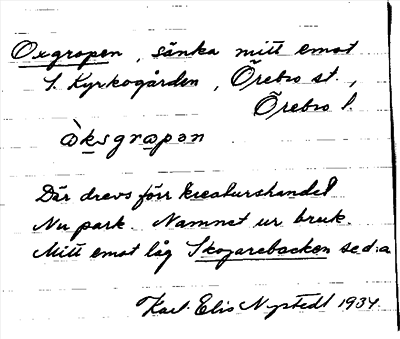 Oxgropen, sänka mitt emot
S. Kyrkogården, Örebro st.,
Örebro l.
òksgrapen
Där drevs förr kreaturshandel
Nu park. Namnet ur bruk.
Mitt emot låg Skojarebacken se d:a
Karl Elis Nystedt 1934.